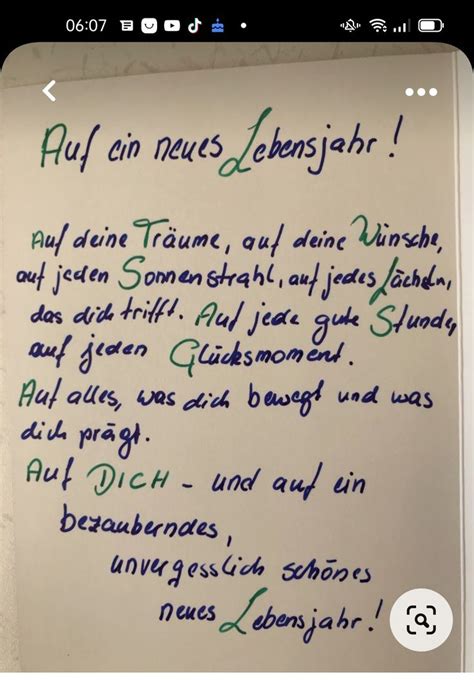 06:07
Auf ein neues Lebensjahr!
Auf deine Träume, auf deine Wünsche,
auf jeden Sonnenstrahl, auf jedes Lächeln,
das dich trifft. Auf jede gute Stunde,
auf jeden Glücksmoment.
Auf alles, was dich bewegt und was
dich prägt.
Auf DICH - und auf ein
bezauberndes,
unvergesslich schönes
neues Lebensjahr!